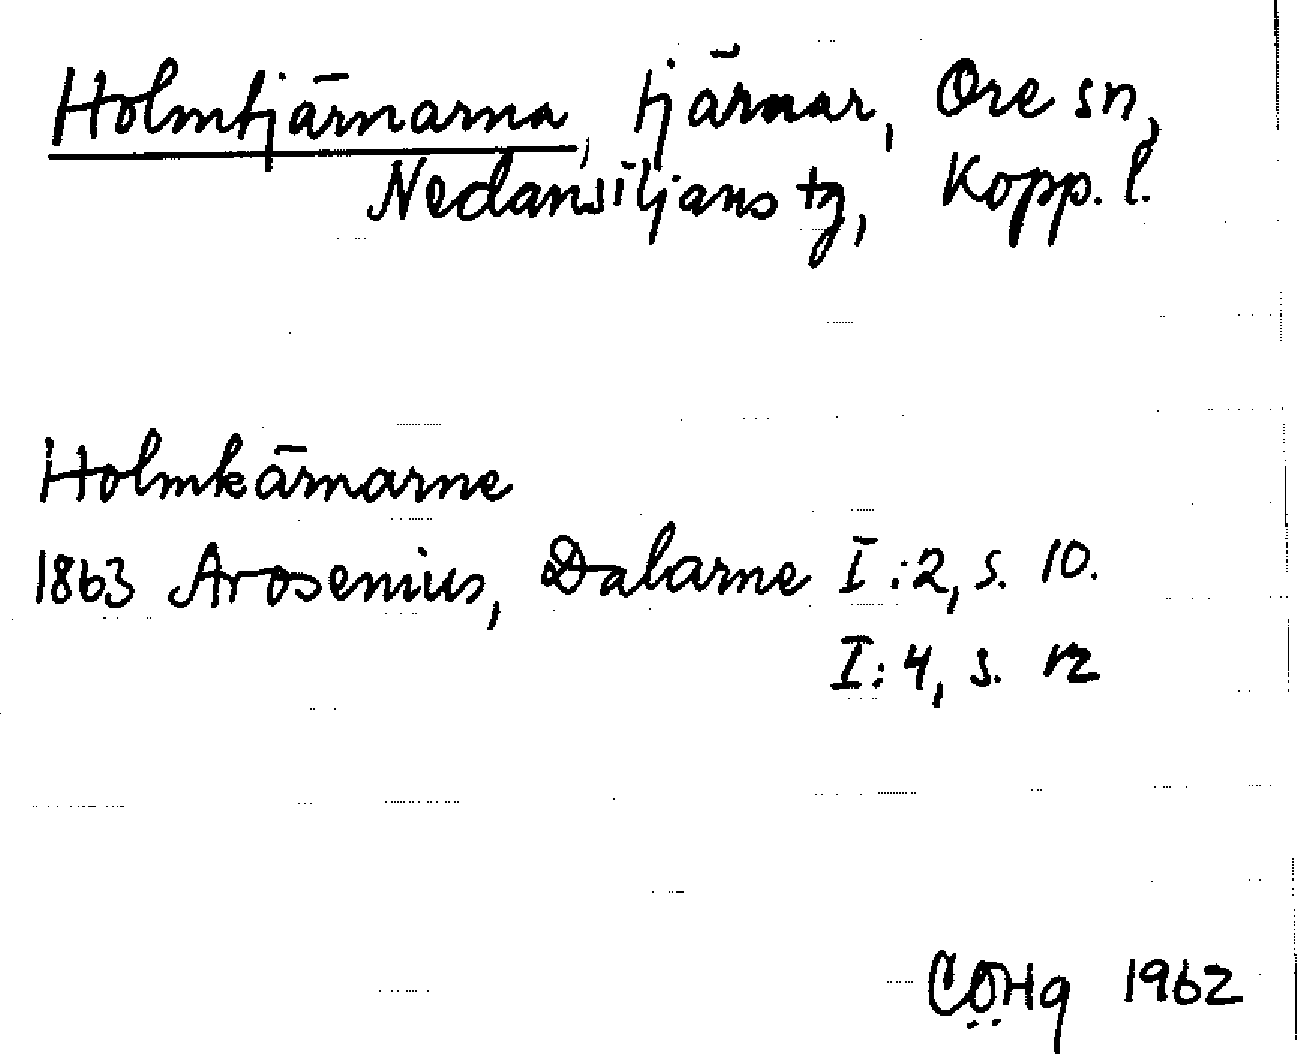 Holmtjärnarna, tjärnar, Ore sn,
Nedansiljans tg, Kopp. l.
Holmkärnarne
1863 Arosenius, Dalarne I:2, s. 10.
I:4, s. 12
CÖHg 1962